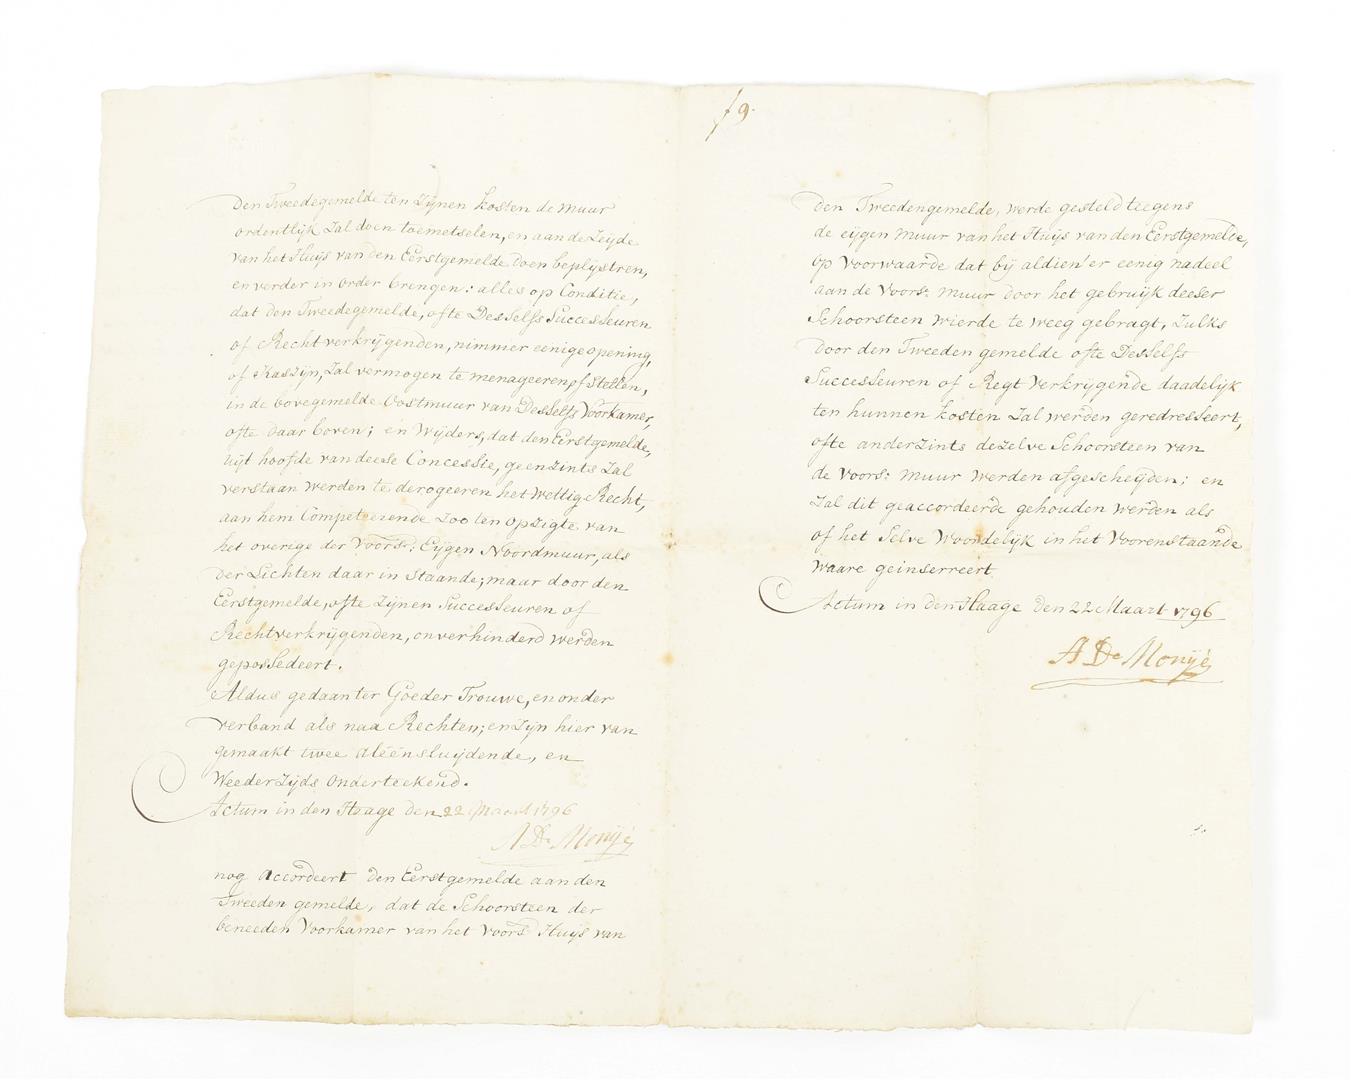 den Tweedegemelde ten Zijnen kosten de muur
ordentlijk Zal doen toemetselen, en aan de Zeijde
van het Huijs van den Eerstgemelde doen beplijstren,
en verder in order brengen: alles op Conditie,
dat den Tweedegemelde, ofte Desselfs Successeuren
of Rechtverkrijgenden, nimmer eenige opening,
of Kaszijn, Zal vermogen te menageeren of Stellen,
in de bovegemelde Oostmuur van Desselfs Voorkamer,
ofte daar boven; en Wijders, dat den Eerstgemelde,
uijt hoofde van deese Concessie, geenzints Zal
verstaan werden te derogeeren het Wettig Recht,
aan hem Competeerende Zoo ten opzigte van
het overige der Voorsz: Eijgen Noordmuur, als
der Lichten daar in Staande; maar door den
Eerstgemelde, ofte Zijnen Successeuren of
Rechtverkrijgenden, onverhinderd werden
gepossedeert.
Aldus gedaan ter Goeder Trouwe, en onder
verband als naa Rechten; en Zijn hier van
gemaakt twee aléénsluijdende, en
WeederZijds Onderteekend.
Actum in den Haage den 22 Maart 1796
A De Monijé
nog Accordeert den Eerstgemelde aan den
Tweeden gemelde, dat de Schoorsteen der
beneeden Voorkamer van het Voorsz Huijs van
f 9.
den Tweedengemelde, werde gesteld teegens
de eijgen muur van het Huijs van den Eerstgemelde,
Op Voorwaarde dat bij aldien'er eenig nadeel
aan de Voorsz: muur door het gebruijk deeser
Schoorsteen wierde te weeg gebragt, Zulks
door den Tweeden gemelde ofte Desselfs
Successeuren of Regt verkrijgende daadelijk
ten hunnen kosten Zal werden geredresseert,
ofte anderzints dezelve Schoorsteen van
de Voorsz: muur werden afgescheijden; en
Zal dit geaccordeerde gehouden werden als
of het Selve Woordelijk in het Voorenstaande
waare geinserreert
Actum in den Haage den 22 Maart 1796
A De Monijé